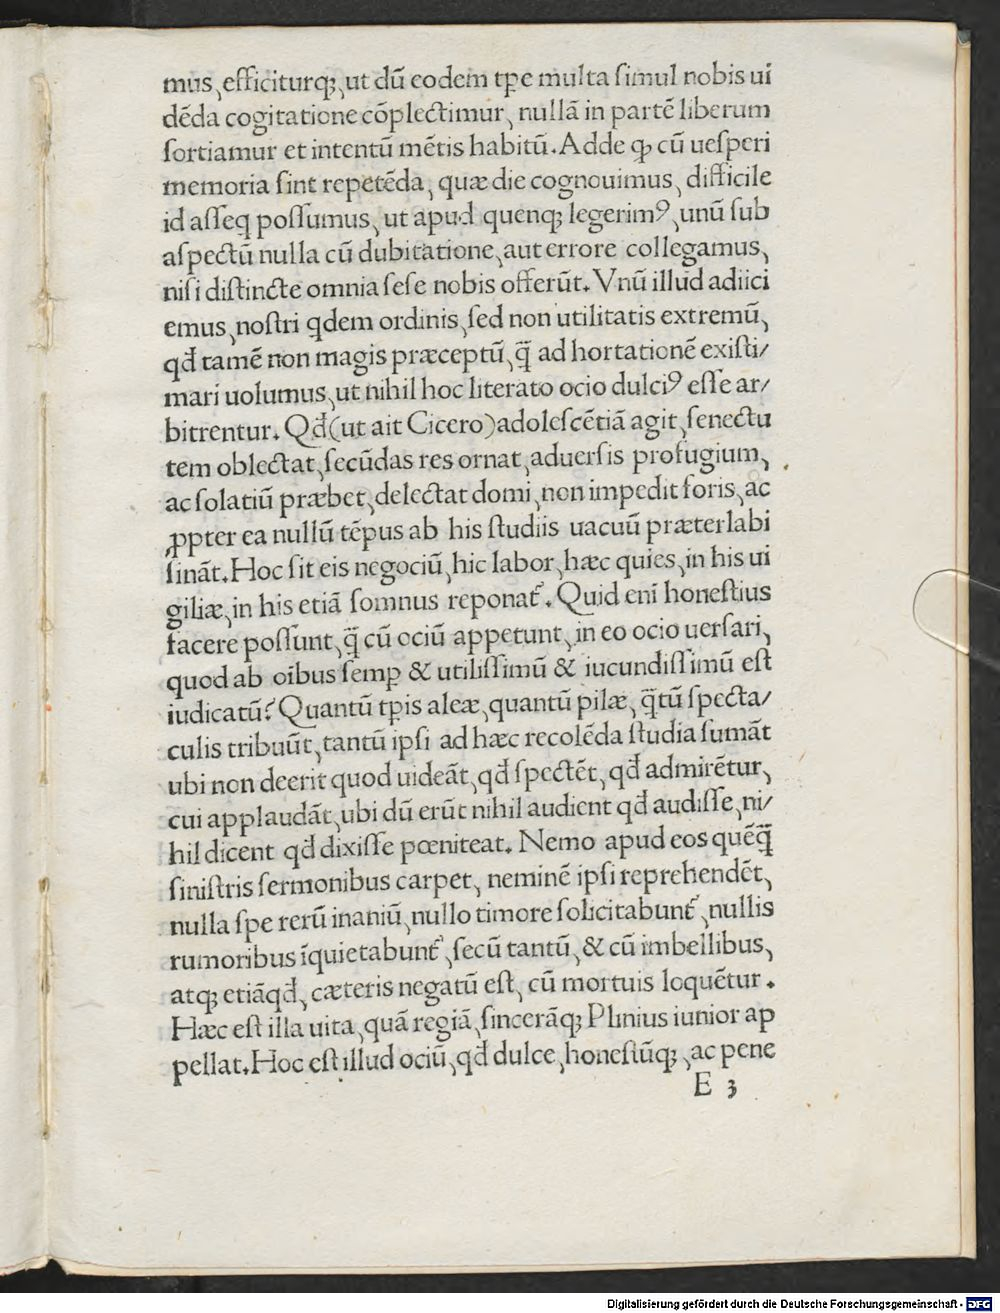 mus, efficiturq;, ut dū eodem tꝑe multa ſimul nobis ui
dēda cogitatione cōplectimur, nullā in partē liberum
ſortiamur et intentū mētis habitū. Adde ꝙ cū ueſperi
memoria ſint repetēda, quæ die cognouimus, difficile
id aſſeq poſſumus, ut apud quenq; legerimꝰ, unū ſub
aſpectū nulla cū dubitatione, aut errore collegamus,
niſi diſtincte omnia ſeſe nobis offerūt. Vnū illud adiici
emus, noſtri qdem ordinis, ſed non utilitatis extremū,
qđ tamē non magis præceptū, q̄ ad hortationē exiſti/
mari uolumus, ut nihil hoc literato ocio dulciꝰ eſſe ar/
bitrentur. Qđ (ut ait Cicero) adoleſcētiā agit, ſenectu
tem oblectat, ſecūdas res ornat, aduerſis profugium,
ac ſolatiū præbet, delectat domi, non impedit foris, ac
ꝓpter ea nullū tēpus ab his ſtudiis uacuū præterlabi
ſināt. Hoc ſit eis negociū, hic labor, hæc quies, in his ui
giliæ, in his etiā ſomnus reponat᷑. Quid eni honeſtius
facere poſſunt, q̄ cū ociū appetunt, in eo ocio uerſari,
quod ab oībus ſemꝑ & utiliſſimū & iucundiſſimū eſt
iudicatū? Quantū tꝑis aleæ, quantū pilæ, q̄tū ſpecta/
culis tribuūt, tantū ipſi ad hæc recolēda ſtudia ſumāt
ubi non deerit quod uideāt, qđ ſpectēt, qđ admirētur,
cui applaudāt, ubi dū erūt nihil audient qđ audiſſe, ni/
hil dicent qđ dixiſſe pœniteat. Nemo apud eos quēq̄
ſiniſtris ſermonibus carpet, neminē ipſi reprehendēt,
nulla ſpe rerū inaniū, nullo timore ſolicitabunt᷑, nullis
rumoribus īquietabunt᷑, ſecū tantū, & cū imbellibus,
atq; etiāqđ, cæteris negatū eſt, cū mortuis loquētur.
Hæc eſt illa uita, quā regiā, ſincerāq; Plinius iunior ap
pellat. Hoc eſt illud ociū, qđ dulce, honeſtūq;, ac pene
E 3
Digitalisierung gefördert durch die Deutsche Forschungsgemeinschaft - DFG